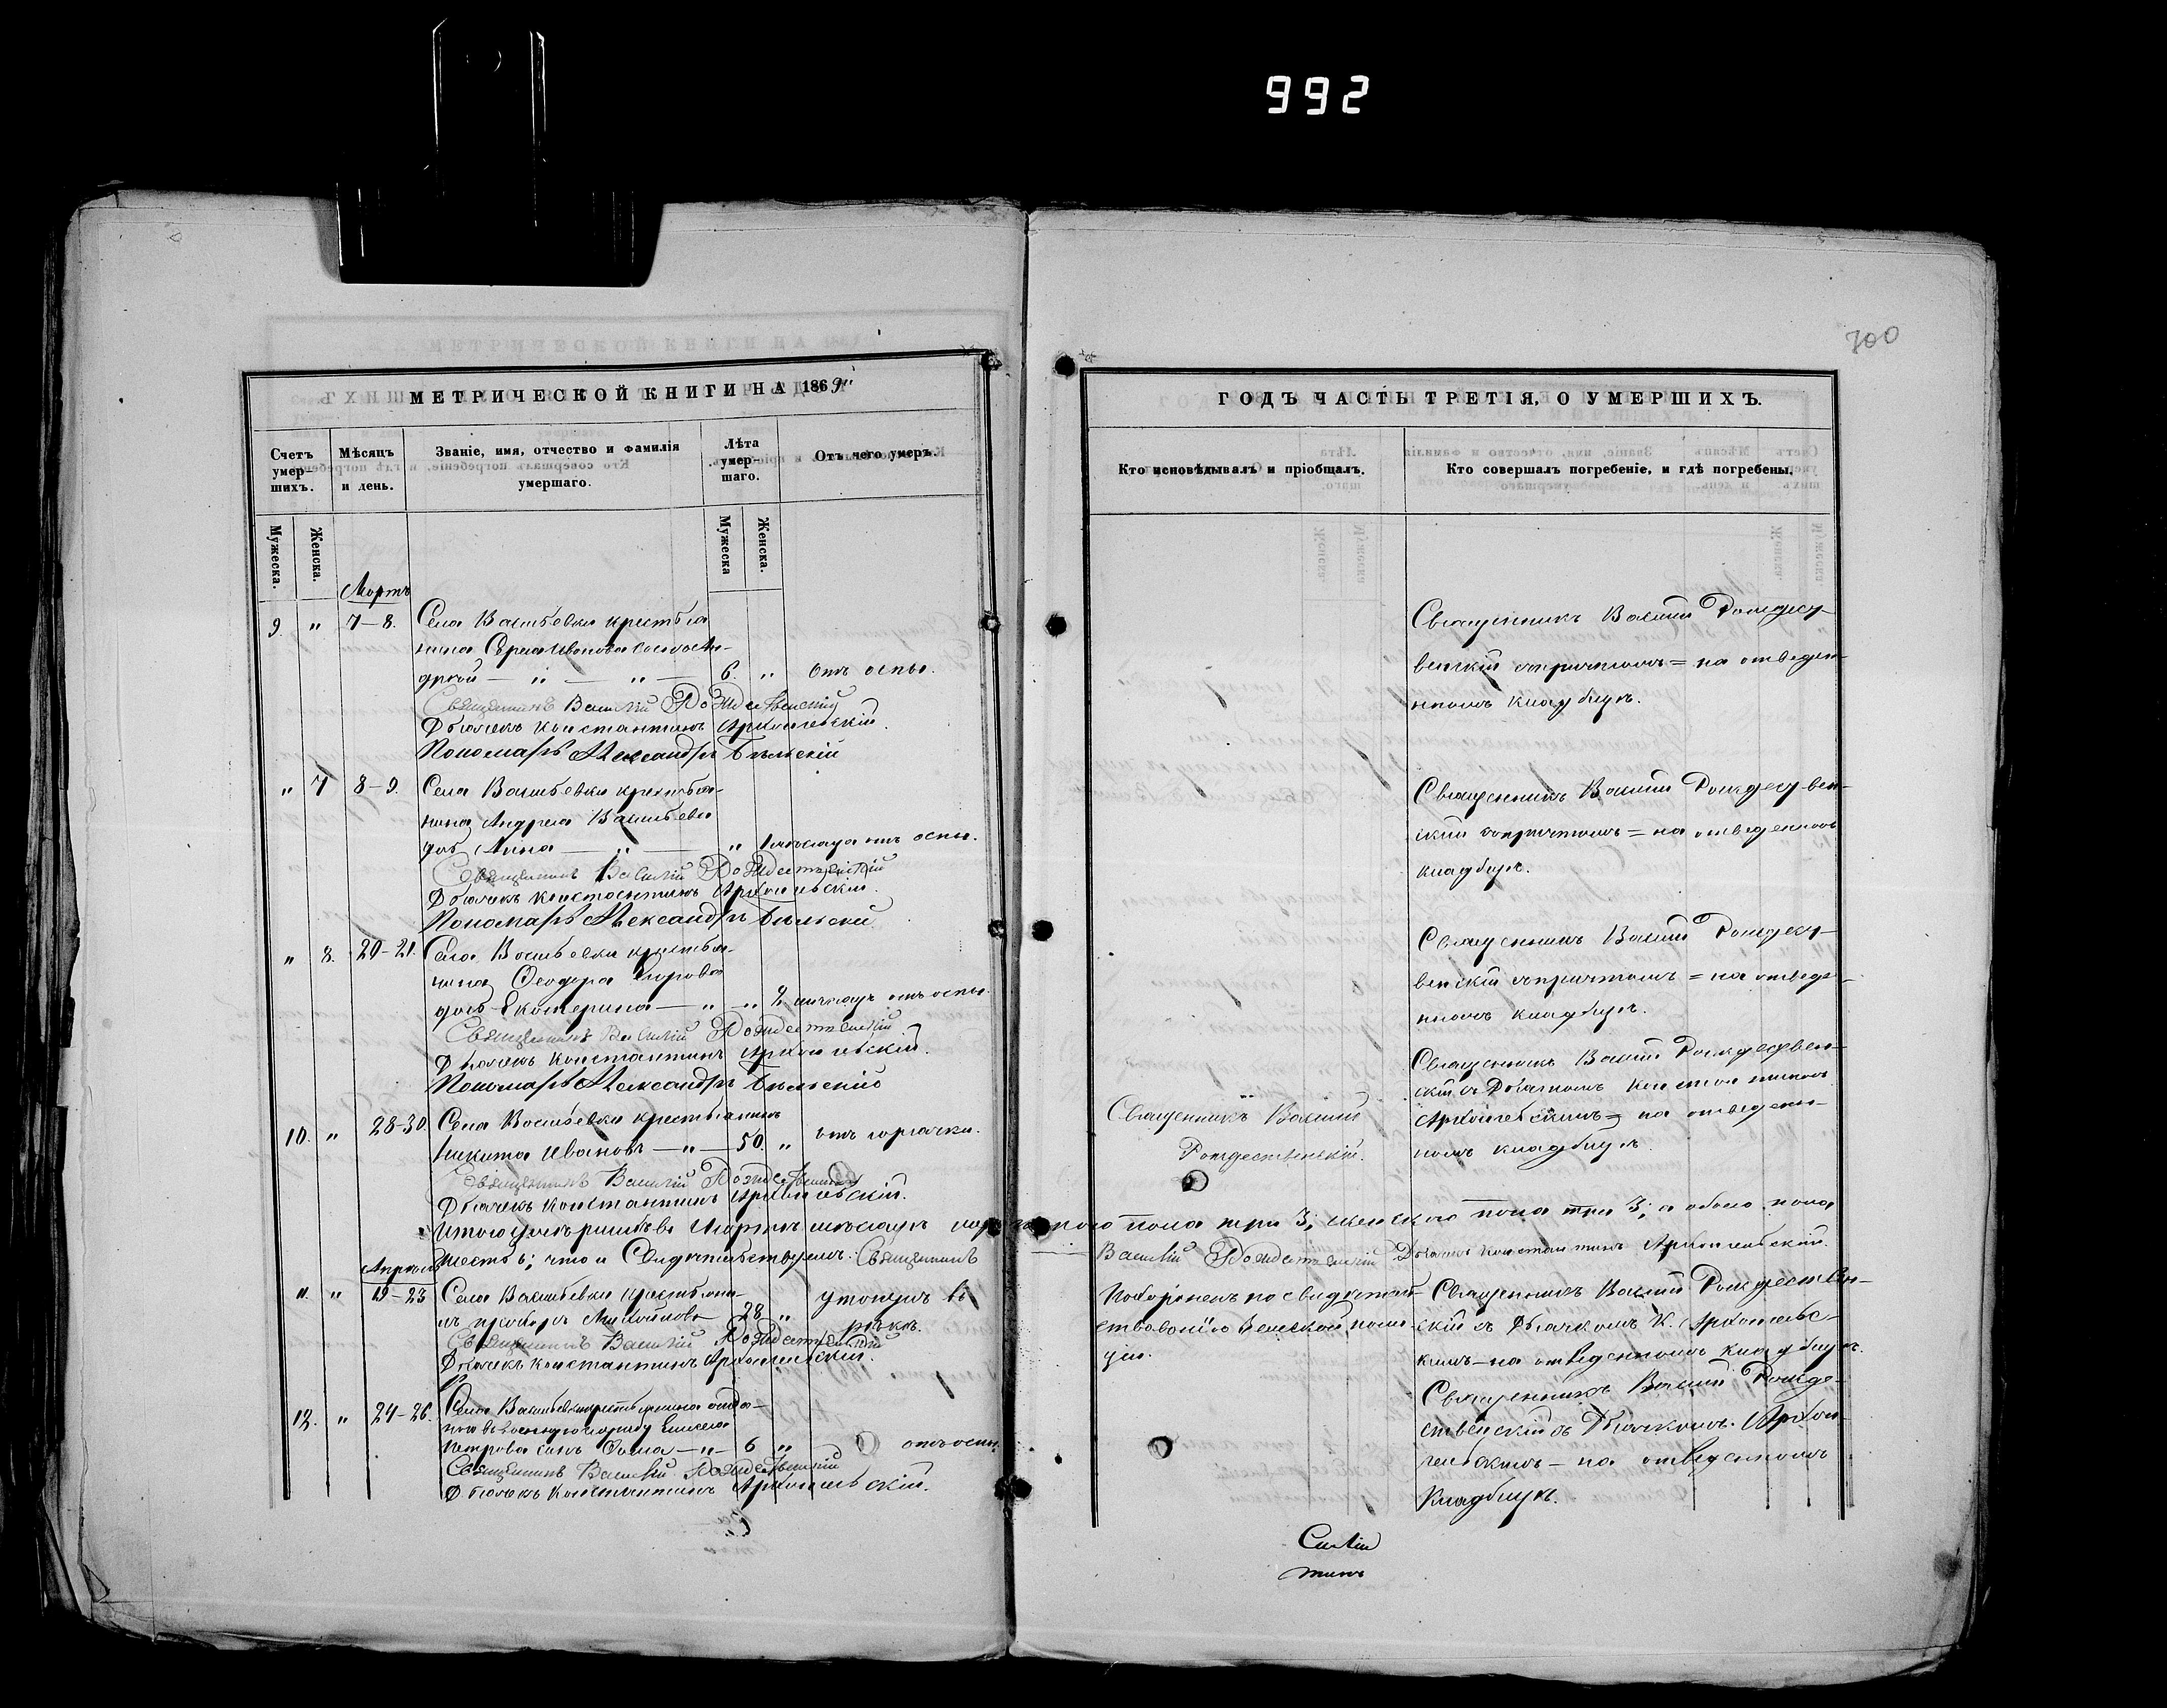 992
700
МЕТРИЧЕСКОЙ КНИГИ НА 1869
ГОДЪ ЧАСТЬ ТРЕТІЯ, О УМЕРШИХЪ.
Счетъ умер-шихъ.
Мѣсяцъ и день.
Званіе, имя, отчество и фамилія умершаго.
Лѣта умер-шаго.
Отъ чего умеръ.
Кто исповѣдывалъ и пріобщалъ.
Кто совершалъ погребеніе, и гдѣ погребены.
Мужеска.
Женска.
Мужеска
Женска.
Мартъ
9. " 7-8. Села Васильевки крестья
нина Сергія Иванова
6. " отъ оспы.
Священникъ Василій Рождественскій
Дьячекъ Константинъ Архангельскій.
Пономарь Александръ Бѣльскій
Священникъ Василій Рождест-
венскій съ причтомъ = на отведен-
номъ кладбищѣ.
" 7 8-9. Села Васильевки крестья-
нина Андрея Васильева
дочь Анна " " отъ оспы.
Священникъ Василій Рождественскій
Дьячекъ Константинъ Архангельскій.
Пономарь Александръ Бѣльскій
Священникъ Василій Рождествен-
скій съ причтомъ = на отведенномъ
кладбищѣ.
" 8. 20-21. Села Васильевки крестья-
нина Ѳеодора Егорова
дочь Екатерина " " отъ оспы.
Священникъ Василій Рождественскій
Дьячекъ Константинъ Архангельскій.
Пономарь Александръ Бѣльскій
Священникъ Василій Рождест-
венскій съ причтомъ = на отведе-
нномъ кладбищѣ.
10. " 28-30. Села Васильевки крестьянинъ
Никита Ивановъ — " — 50. " отъ горячки.
Священникъ Василій Рождественскій
Дьячекъ Константинъ Архангельскій.
Священникъ Василій
Рождественскій.
Священникъ Василій Рождествен-
скій съ Дьячкомъ Константиномъ
Архангельскимъ = на отведен-
номъ кладбищѣ.
Итого умершихъ въ Мартѣ мѣсяцѣ пола три 3; женскаго пола три 3; а обоего пола
шесть 6; что и Свидѣтельствуемъ. Священникъ
Василій Рождественскій Дьячекъ Константинъ Архангельскій.
Апрѣль
11. " 19-23 Села Васильевки крестьяни-
нъ Михайловъ 28 " утонулъ въ
рѣкѣ.
Священникъ Василій Рождественскій
Дьячекъ Константинъ Архангельскій.
Похороненъ по свидѣтель-
ствованію Земской поли-
ціи.
Священникъ Василій Рождествен-
скій съ Дьячкомъ К. Архангельс-
кимъ — на отведенномъ кладбищѣ.
12. " 24-26. Села Васильевки крестьянина
Петрова сынъ Ѳома — " — 6 " отъ оспы.
Священникъ Василій Рождественскій
Дьячекъ Константинъ Архангельскій.
Священникъ Василій Рожде-
ственскій съ Дьячкомъ Архан-
гельскимъ — на отведенномъ
Кладбищѣ.